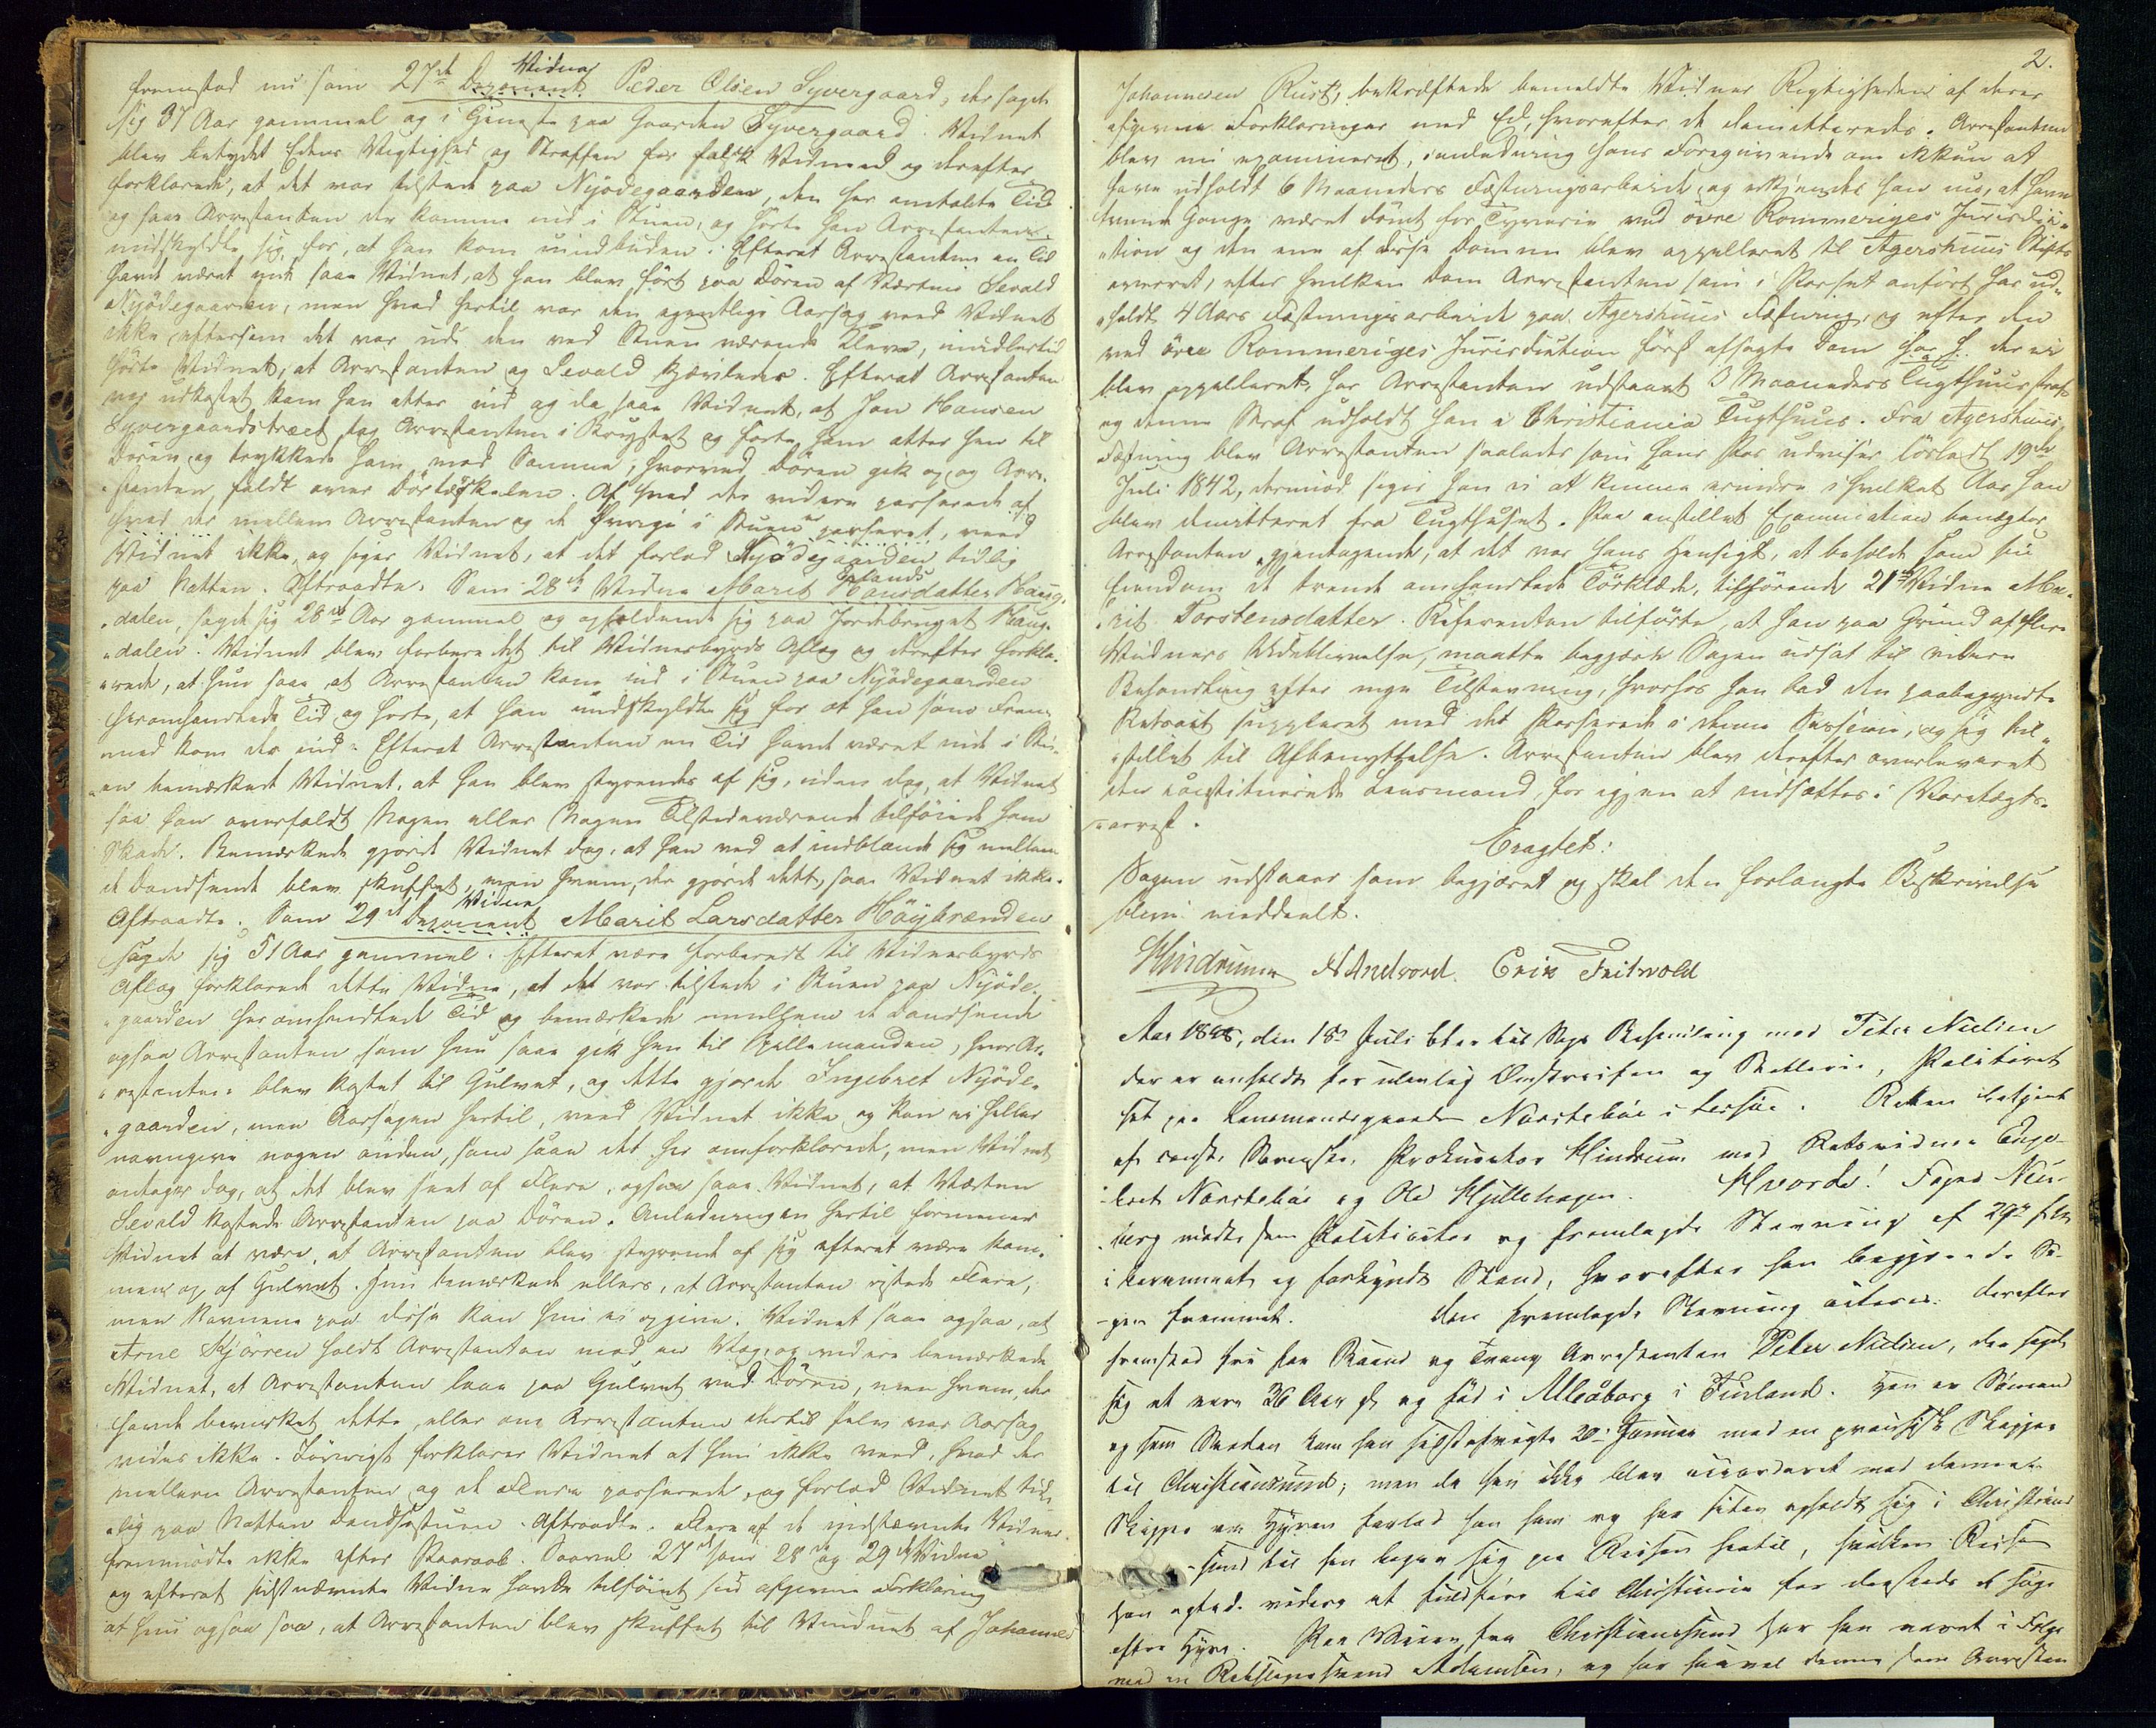 fremstod nu som 27de Deponent Vidne Peder Olsen Syvergaard, der sagde
sig 37 Aar gammel og i Tjeneste paa Gaarden Syvergaard. Vidnet
blev betydet Edens Vigtighed og Straffen for falsk Vidneed og derefter
forklarede, at det var tilstede paa Nyödegaarden, den her omtalte Tid
og saae Arrestanten der komme ind i Stuen, og hørte han Arrestanten
undskyldte sig for, at han kom uindbuden. Efterat Arrestanten en Tid
havde været inde saae Vidnet, at han blev ført paa Dören af Værten Sevald
Nyödegaarden, men hvad hertil var den egentlige Aarsag veed Vidnet
ikke eftersom det var ude den ved Stuen værende Kleve, imidlertid
hørte Vidnet, at Arrestanten og Sevald kjævledes. Efterat Arrestanten
var udkastet kom han atter ind og da saae Vidnet, at Jon Hansen
Syvergaardstræet tog Arrestanten i Brystet og førte ham atter hen til
Dören og trykkede ham mod Samme, hvorved Dören gik op og Arre-
stanten faldt over Dörtærskelen. Af hvad der videre passerede af
hvad der mellem Arrestanten og de Øvrige i Stuen er passeret, veed
Vidnet ikke, og siger Vidnet, at det forlod Nyödegaarden tidlig
paa Natten. Aftraadte. Som 28de Vidne Marit Hansdatter Haug-
dalen, sagde sig 28 Aar gammel og opholdende sig paa Jordebruget Haug-
dalen. Vidnet blev forberedet til Vidnesbyrds Aflæg og derefter forkla-
rede, at hun saae at Arrestanten kom ind i Stuen paa Nyödegaarden
heromhandlede Tid og hørte, at han undskyldte sig for at han som Frem-
med kom der ind. Efterat Arrestanten en Tid havde været inde i Stu-
en bemærkede Vidnet, at han blev styrendes af sig, uden dog, at Vidnet
saae han overfaldt Nogen eller Nogen Tilstedeværende tilføiede ham
Skade. Bemærkede gjorde Vidnet dog, at han ved at indblande sig mellem
de Dandsende blev skuffet, men hvem, der gjorde dette, saae Vidnet ikke.
Aftraadte. Som 29de Deponent Vidne Marit Larsdatter Höybrænden
sagde sig 51 Aar gammel. Efterat være forberedt til Vidnesbyrds
Aflæg forklarede dette Vidne, at det var tilstede i Stuen paa Nyöde-
gaarden her omhandlede Tid og bemærkede mellem de Dandsende
ogsaa Arrestanten som hun saae gik hen til Spillemanden, hvor Ar-
restanten blev kastet til Gulvet, og dette gjorde Ingebret Nyöde-
gaarden, men Aarsagen hertil, veed Vidnet ikke og kan ei heller
navngive nogen anden, som saae det her omforklarede, men Vidnet
antager dog, at det blev seet af Flere, ogsaa saae Vidnet, at Værten
Sevald kastede Arrestanten paa Dören. Anledningen hertil formener
Vidnet at være, at Arrestanten blev styrende af sig efterat være kom-
men op af Gulvet. Hun bemærkede ellers, at Arrestanten ristede Flere,
men Navnene paa disse kan hun ei opgive. Vidnet saae ogsaa, at
Arne Kjörren holdt Arrestanten med en Vag, og videre bemærkede
Vidnet, at Arrestanten laae paa Gulvet ved Dören, men hvem, der
havde bevirket dette, eller om Arrestanten dertil selv var Aarsag
vides ikke. Iøvrigt forklarer Vidnet at hun ikke veed, hvad der
mellem Arrestanten og de Flere passerede, og forlod Vidnet tid-
lig paa Natten Dandsestuen. Aftraadte. Flere af de indstævnte Vidner
fremmødte ikke efter Paaraab. Saavel 27de som 28de og 29de Vidne
og efterat sidstnævnte Vidne havde tilføiet sin afgivne Forklaring
at hun ogsaa saae, at Arrestanten blev skuffet til Vinduet af Johannes
2.
Johannesen Rust, bekræftede bemeldte Vidner Rigtigheden af deres
afgivne Forklaringer med Ed, hvorefter de demitteredes. Arrestanten
blev nu examineret, i anledning hans Foregivende om ikkun at
have udholdt 6 Maaneders Fæstningsarbeide, og erkjendte han nu, at have
tvende Gange været dømt for Tyverie ved övre Rommeriges Jurisdi-
ction og den ene af disse Domme blev appelleret til Agershuus Stifts
overret, efter hvilken Dom Arrestanten som i Passet anført har ud-
holdt 4 Aars Fæstningsarbeide paa Agershuus Fæstning, og efter den
ved övre Rommeriges Jurisdiction først afsagte Dom der ei
blev appelleret, har Arrestanten udstaaet 3 Maaneders Tugthuusstraf
og denne Straf udholdt han i Christiania Tugthuus. Fra Agershuus
Fæstning blev Arrestanten saaledes som hans Pas udviser løsladt 19de
Juli 1842, derimod siger han ei at kunne erindre i hvilket Aar han
blev demitteret fra Tugthuset. Paa anstillet Examination benægter
Arrestanten gjentagende, at det var hans Hensigt, at beholde som sin
Eiendom det tvende omhandlede Törklæde, tilhørende 21de Vidne Ma-
rit Torstensdatter. Referenten tilførte, at han paa Grund af flere
Vidners Udeblivelse, maatte begjære Sagen udsat til videre
Behandling efter nye Tilstævning, hvorhos han bad den paabegyndte
Retsact suppleret med det Passerede i denne Session, og sig til-
stillet til Afbenyttelse. Arrestanten blev derefter overleveret
den constituerede Lensmand, for igjen at indsættes i Varetægts-
arrest.
Eragtet:
Sagen udstaaer som begjæret og skal den forlangte Beskrivelse
blive meddeelt.
Hindrum N Andvord. Erik Feitvold
Aar 1848, den 18de Juli blev Sags Behandling mod Peter Nielsen
der er anholdt for ulovlig Omstreifen og Betlerie, Politiret
sat paa Lensmandsgaarden Norstebøe i Lessøe. Retten betjent
af const. Sorenskr. Prokurator Hindrum med Retsvidner Enge-
bret Norstebøe og Ole Hjellehagen. Hvorda! Foged Neu-
berg mødte som Politiactor og fremlagde Stævning af 29de
i kommet og forkyndt Stand, hvorefter han begjærede Sa-
gen fremmet. den fremlagde Stævning acteres. derefter
fremstod frie for Baand og Tvang Arrestanten Peter Nielsen, der sagde
sig at være 36 Aar gl og fød i Uleåborg i Finland. Han er Sømand
og fra Sveden kom han sidstafvigte 20de Januar med en preusisk Skipper
til Christiansund; men da han ikke blev accorderet med denne
Skipper om Hyren forlod han ham og har siden opholdt sig i Christian-
sund til han begav sig paa Reisen hertil, hvilken Reise
han agtede videre at fuldføre til Christiania for dersteds at søge
efter Hyre. Paa Veien fra Christianssund har han været i Følge
med en Adamsen, og har saavel denne som Arrestan